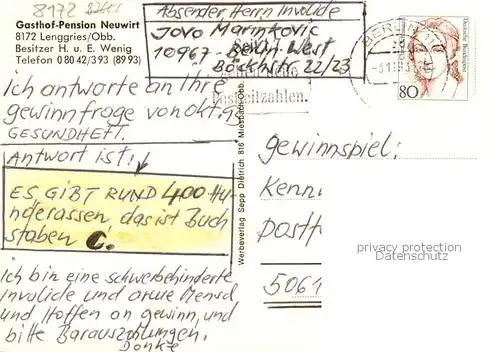 8172
Gasthof-Pension Neuwirt
8172 Lenggries/Obb.
Besitzer H. u. E. Wenig
Telefon 0 80 42/3 93 (89 93)
Absender Herrn Involide
Jovo Marinkovic
10967 - Berlin - West
Böckhstr 22/23
Postleitzahlen.
BERLIN 11
Deutsche Bundespost
80
Ich antworte an Ihre
gewinnfroge von Okt. 93
GESUNDHEFT.
Antwort ist:
ES GIBT RUND 400 Hu-
nderassen das ist Buch
staben C.
Ich bin eine schwerbehinderte
Involide und arme Mensch
und Hoffen on gewinn, und
bitte Barauszohlungen.
Donke
Werbeverlag Sepp Dietrich 816 Miesbach/Obb.
gewinnspiel:
Kenn
postf
5061
privacy protection
Datenschutz